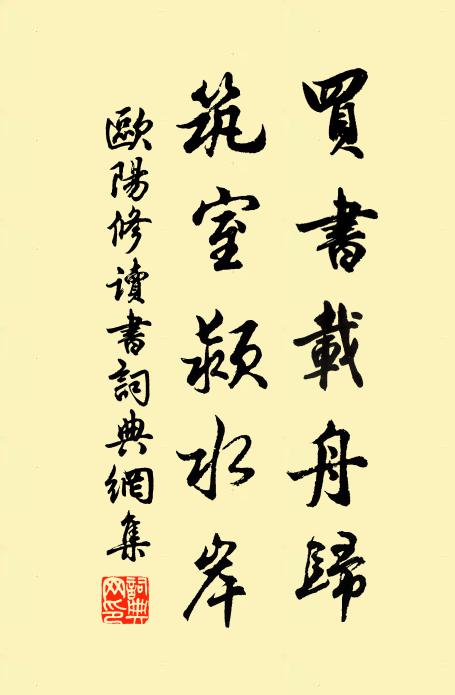 買書載舟歸
筑室潁水岸
歐陽修讀書詞典網集
詞典網印